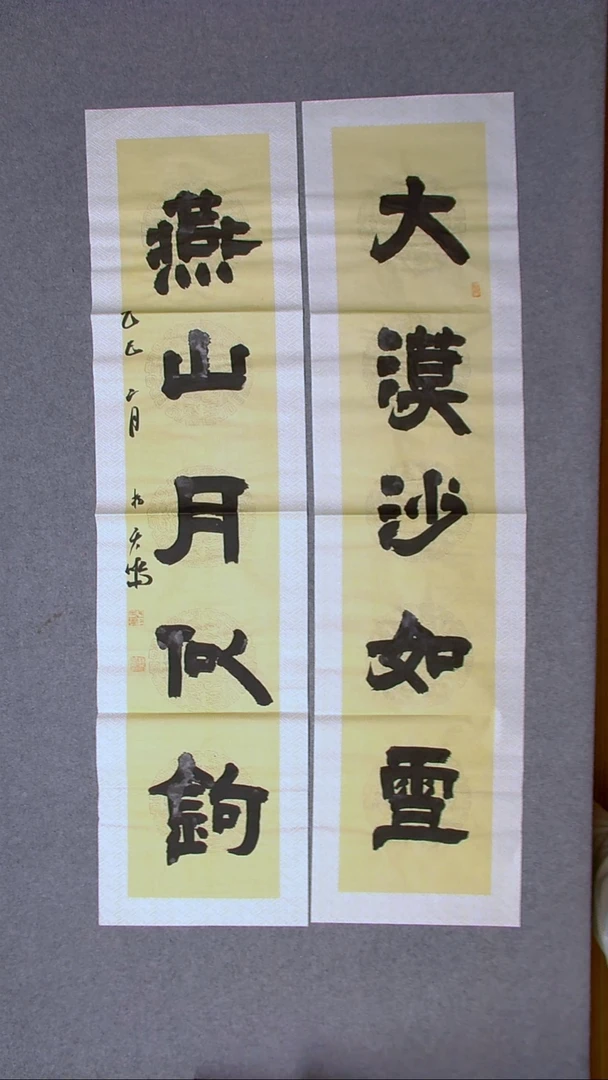 大漠沙如雪
燕山月似鉤
乙巳二月